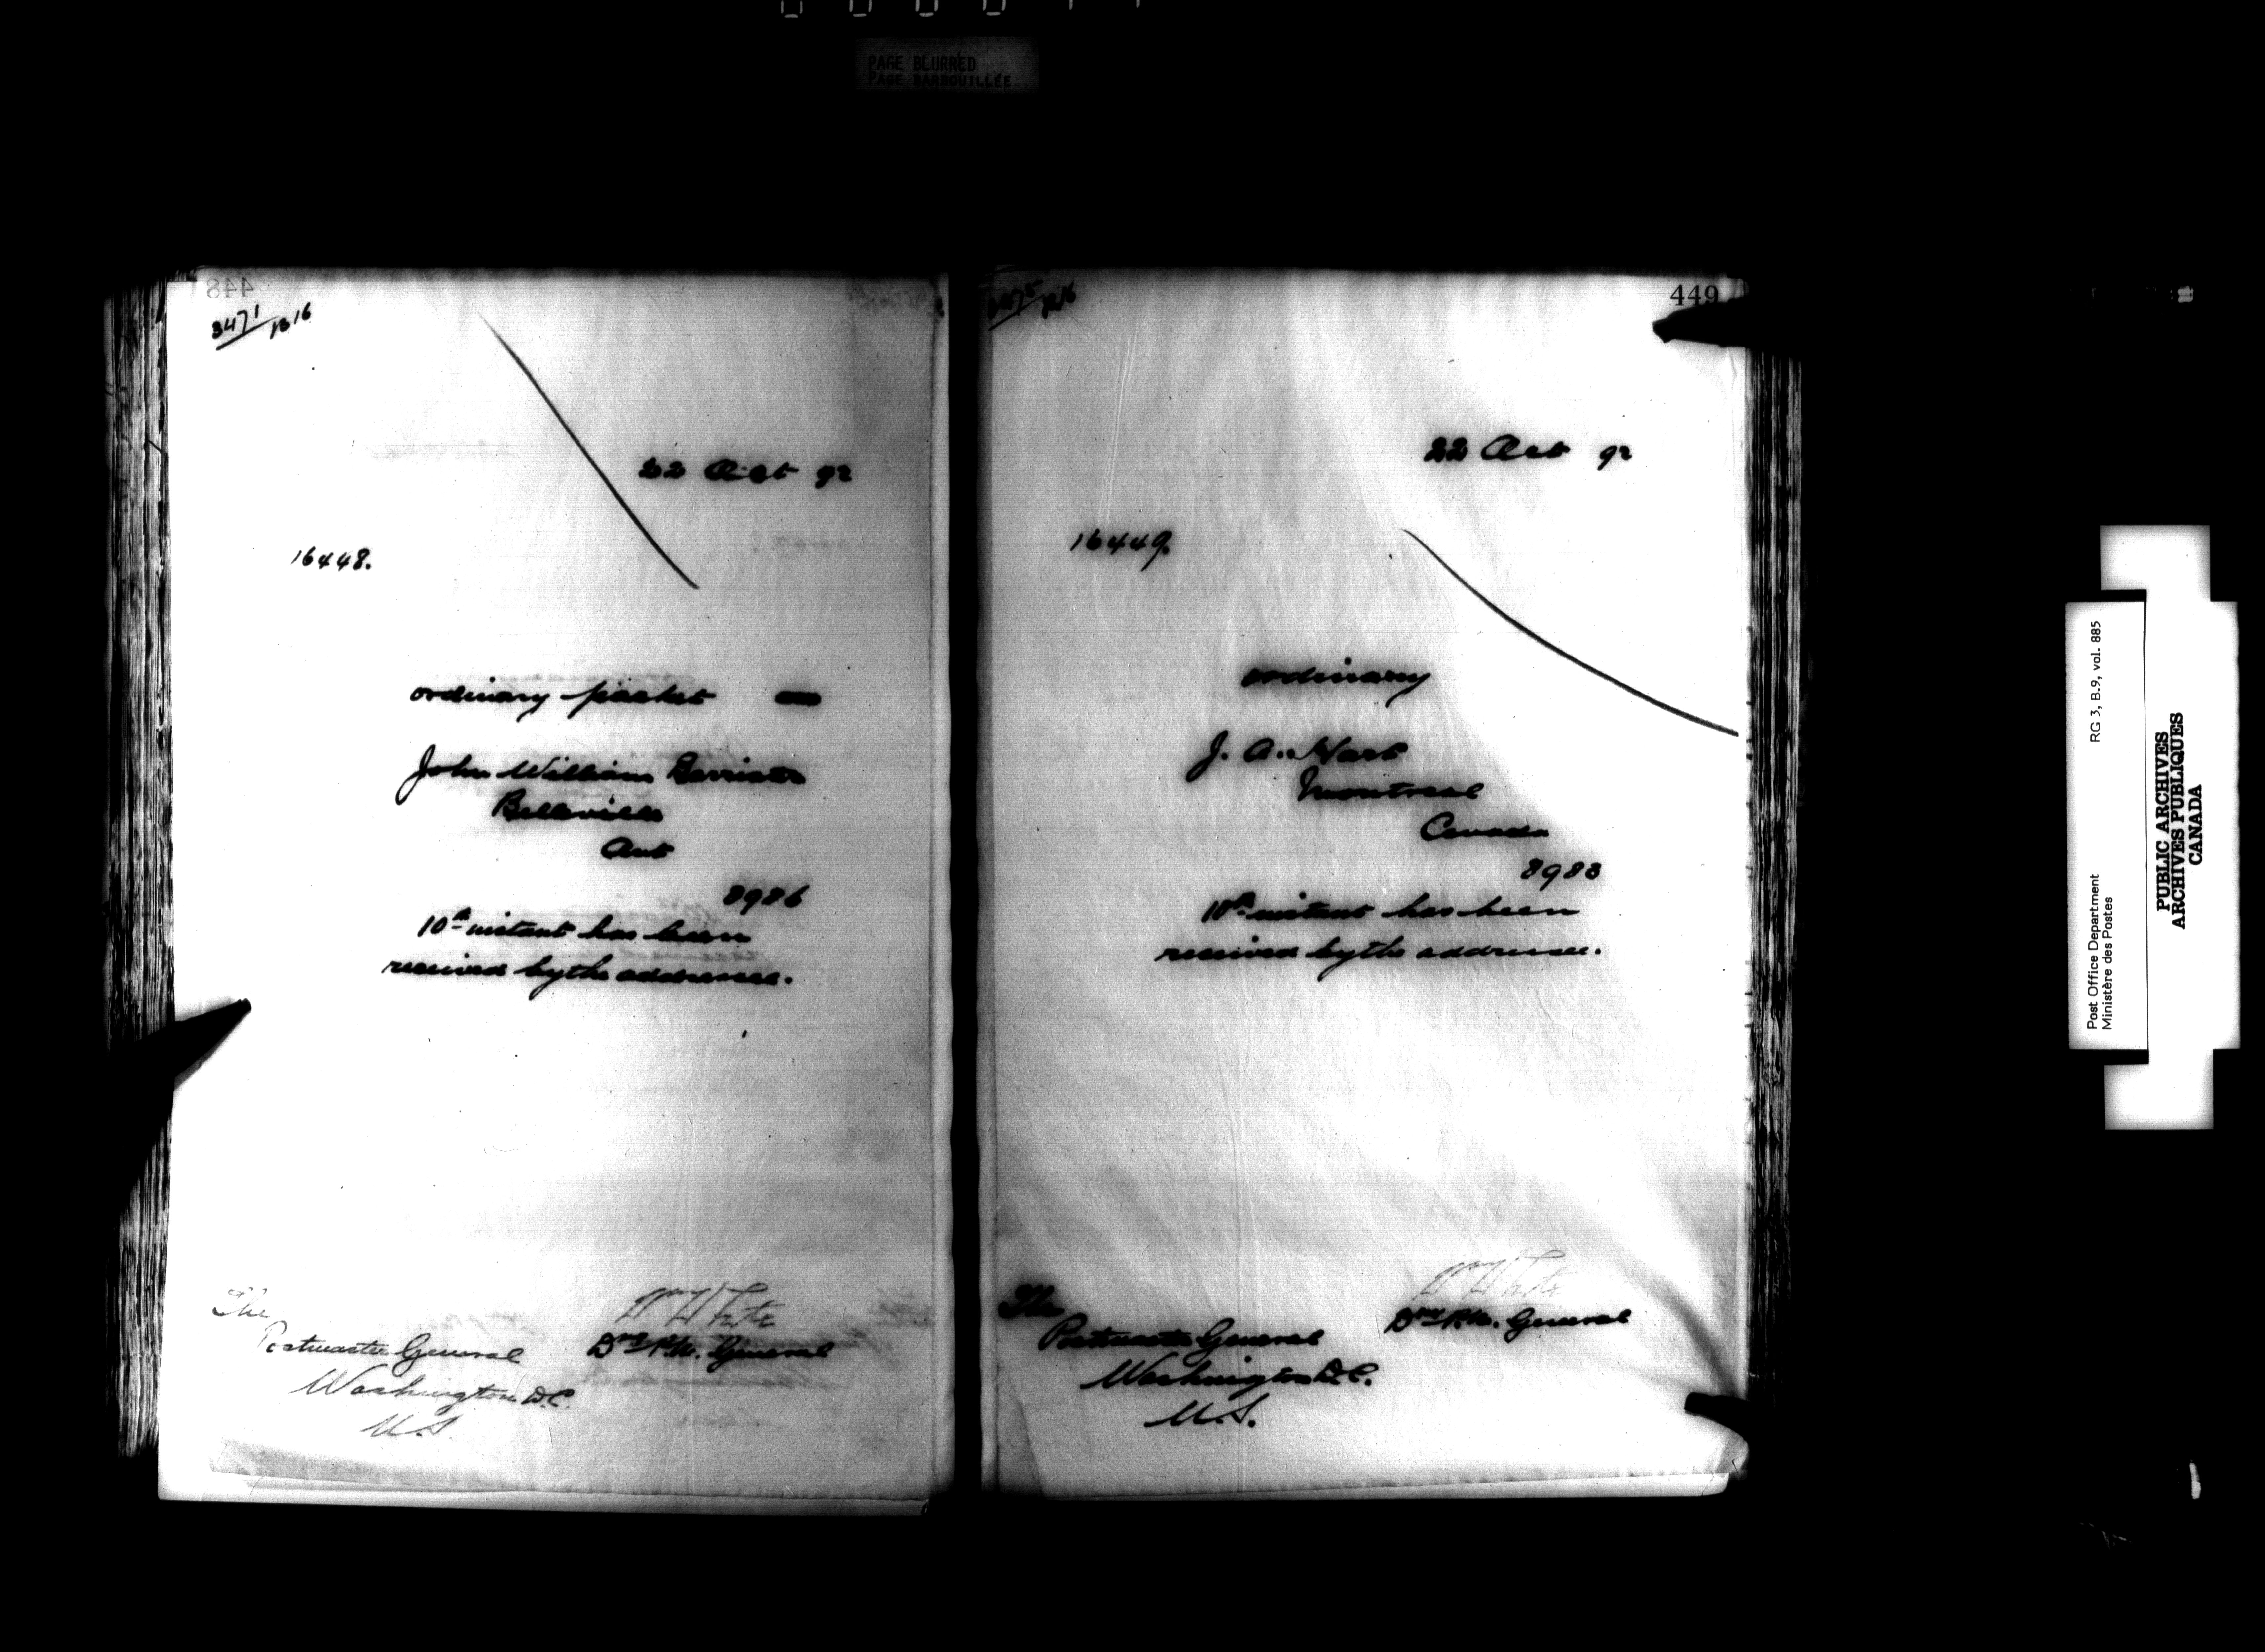 PAGE BLURRED
PAGE BARBOUILLÉE
448
3471/B16
22 Oct 92
16448.
ordinary packet
John William
Belleville
Ont
8986
10th instant has been
received by the addressee.
The
Postmaster General
Washington D.C.
U.S.
W White
D'ty P.M. General
449
3475/B16
22 Oct 92
16449.
ordinary
J. A. Hart
Montreal
Canada
8983
10th instant has been
received by the addressee.
The
Postmaster General
Washington D.C.
U.S.
W White
D'ty P.M. General
Post Office Department RG 3, B.9, vol. 885
Ministère des Postes
PUBLIC ARCHIVES
ARCHIVES PUBLIQUES
CANADA